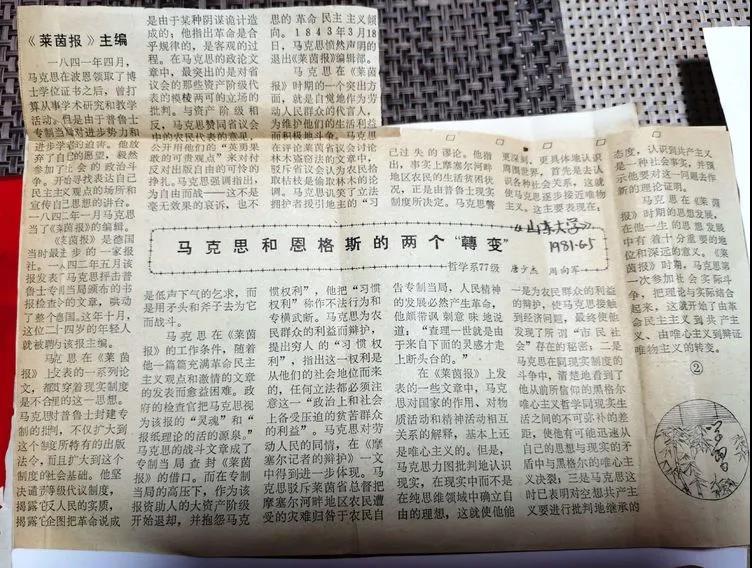 《莱茵报》主编
一八四一年四月，
马克思在波恩领取了博
士学位证书之后，曾打
算从事学术研究和教学
活动。但是由于普鲁士
专制当局对进步势力和
进步学者的迫害，他放
弃了自己的愿望，毅然
参加了社会的政治斗
争。开始寻找表达自己
民主主义观点的场所和
宣传自己思想的讲台。
一八四二年一月马克思
当了《莱茵报》的编辑。
《莱茵报》是德国
当时最进步的一家报
社。一八四二年五月该
报发表了马克思抨击普
鲁士专制当局颁布的书
报检查令的文章，轰动
了整个德国。这年十月，
这位二十四岁的年轻人
就被聘为该报主编。
马克思在《莱茵报》
上发表的一系列论
文，都贯穿着现实制度
是不合理的这一思想。
马克思对普鲁士封建专
制的批判，不仅扩大到
这个制度所特有的出版
法令，而且扩大到这个
制度的社会基础。他坚
决谴责等级代议制度，
揭露它反人民的实质，
揭露它企图把革命说成
是由于某种阴谋诡计造
成的；他指出革命是合
乎规律的，是客观的过
程。在马克思的政论文
章中，最突出的是对省
议会的那些资产阶级代
表的模棱两可的立场的
批判。与资产阶级相
反，马克思赞同省议会
中的农民代表的意见，
公开用他们的“英勇果
敢的可贵观点”来对付
反对出版自由的可怜的
挣扎。马克思强调指出，
为自由而战——这不是
毫无效果的哀诉，也不
马克思和恩格斯的两个“轉变”
《山东大学》
1981.6.5
哲学系77级 唐少杰 周向军
是低声下气的乞求，而
是用矛头和斧子去为它
而战斗。
马克思在《莱茵报》
的工作条件，随着
他一篇篇充满革命民主
主义观点和激情的文章
的发表而愈益困难。政
府的检查官把马克思视
为该报的“灵魂”和“
报纸理论的活的源泉。”
马克思的战斗文章成了
专制当局查封《莱茵报》
的借口。而在专制
当局的高压下，作为该
报资助人的大资产阶级
开始退却，并抱怨马克
思的革命民主主义倾
向。1843年3月18
日，马克思愤然声明的
退出《莱茵报》编辑部。
马克思在《莱茵
报》时期的一个突出方
面，就是自觉地作为劳
动人民群众的代言人，
为维护他们的生活利益
而积极地斗争。马克思
在评论莱茵省议会讨论
林木盗窃法的文章中，
驳斥省议会认为农民捡
取枯枝是偷取林木的论
调。马克思认为，立法
拥护者援引地主的“习
惯权利”，他把“习惯
权利”称作不法行为和
专横武断。马克思为农
民群众的利益而辩护，
提出穷人的“习惯权
利”，指出这一权利是
从他们的社会地位而来
的，任何立法都必须注
意这一“政治上和社会
上备受压迫的贫苦群众
的利益”。马克思对劳
动人民的同情，在《摩
塞尔记者的辩护》一文
中得到进一步体现。马
克思驳斥莱茵省总督把
摩塞尔河畔地区农民遭
受的灾难归咎于农民自
己过失的谬论。他指
出，事实上摩塞尔河畔
地区农民的生活贫困状
况，正是由普鲁士现实
制度所决定。马克思警
告专制当局，人民精神
的发展必然产生革命，
他颇带讽刺意味地说
道，“查理一世就是由
于来自下面的灵感才走
上断头台的。”
在《莱茵报》上发
表的一些文章中，马克
思对国家的作用，对物
质活动和精神活动相互
关系的解释，基本上还
是唯心主义的。但是，
马克思力图批判地认识
现实，在现实中而不是
在纯思维领域中确立自
由的理想，这就使他能
更深刻、更具体地认识
周围世界，首先是去认
识各种社会关系。这就
使马克思逐步接近唯物
主义。这主要表现在：
一是为农民群众的利益
的辩护，使马克思接触
到经济问题，最终使他
发现了所谓“市民社
会”存在的秘密；二是
马克思在同现实制度的
斗争中，清楚地看到了
他从前所信仰的黑格尔
唯心主义哲学同现实生
活之间的不可弥补的差
距，使他有可能迅速从
自己的思想与现实的矛
盾中与黑格尔的唯心主
义决裂；三是马克思这
时已表明对空想共产主
义要进行批判地继承的
态度，认识到共产主义
是一种社会事实，并预
示他要对这一问题去作
新的理论证明。
马克思在《莱茵
报》时期的思想发展，
在他一生的思想发展
中有着十分重要的地
位和深远的意义。《莱
茵报》时期，马克思第
一次参加社会实际斗
争，把理论与实际结合
起来，这就开始了由革
命民主主义到共产主
义、由唯心主义到辩证
唯物主义的转变。
②